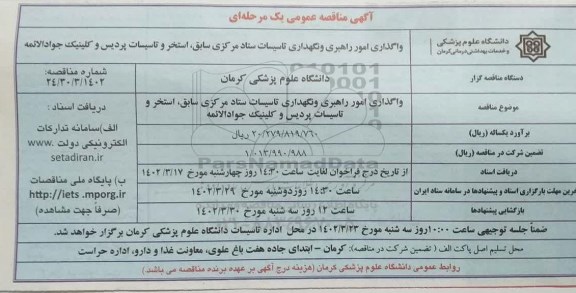 آگهی مناقصه عمومی یک مرحله‌ای
دانشگاه علوم پزشکی
و خدمات بهداشتی درمانی کرمان
واگذاری امور راهبری ونگهداری تاسیسات ستاد مرکزی سابق، استخر و تاسیسات پردیس و کلینیک جوادالائمه
دستگاه مناقصه گزار
دانشگاه علوم پزشکی کرمان
شماره مناقصه:
۲۴/۳۰/۳/۱۴۰۲
موضوع مناقصه
واگذاری امور راهبری ونگهداری تاسیسات ستاد مرکزی سابق، استخر و
تاسیسات پردیس و کلینیک جوادالائمه
دریافت اسناد :
الف)سامانه تدارکات
الکترونیکی دولت www.
setadiran.ir
ب) پایگاه ملی مناقصات
http://iets.mporg.ir
(صرفاً جهت مشاهده)
برآورد یکساله (ریال)
۲۰/۲۷۹/۸۱۹/۷۶۰ ریال
تضمین شرکت در مناقصه (ریال)
۱/۰۱۳/۹۹۰/۹۸۸
دریافت اسناد
از تاریخ درج فراخوان لغایت ساعت ۱۴:۳۰ روز چهارشنبه مورخ ۱۴۰۲/۳/۱۷
مهلت بارگزاری اسناد و پیشنهادها در سامانه ستاد ایران
ساعت ۱۴:۳۰ روزدوشنبه مورخ ۱۴۰۲/۳/۲۹
بازگشایی پیشنهادها
ساعت ۱۲ روز سه شنبه مورخ ۱۴۰۲/۳/۳۰
ضمناً جلسه توجیهی ساعت ۱۰:۰۰روز سه شنبه مورخ ۱۴۰۲/۳/۲۳ در محل اداره تاسیسات دانشگاه علوم پزشکی کرمان برگزار خواهد شد.
محل تسلیم اصل پاکت الف ( تضمین شرکت در مناقصه): کرمان - ابتدای جاده هفت باغ علوی، معاونت غذا و دارو، اداره حراست
روابط عمومی دانشگاه علوم پزشکی کرمان (هزینه درج آگهی بر عهده برنده مناقصه می باشد.)
ParsNamadData